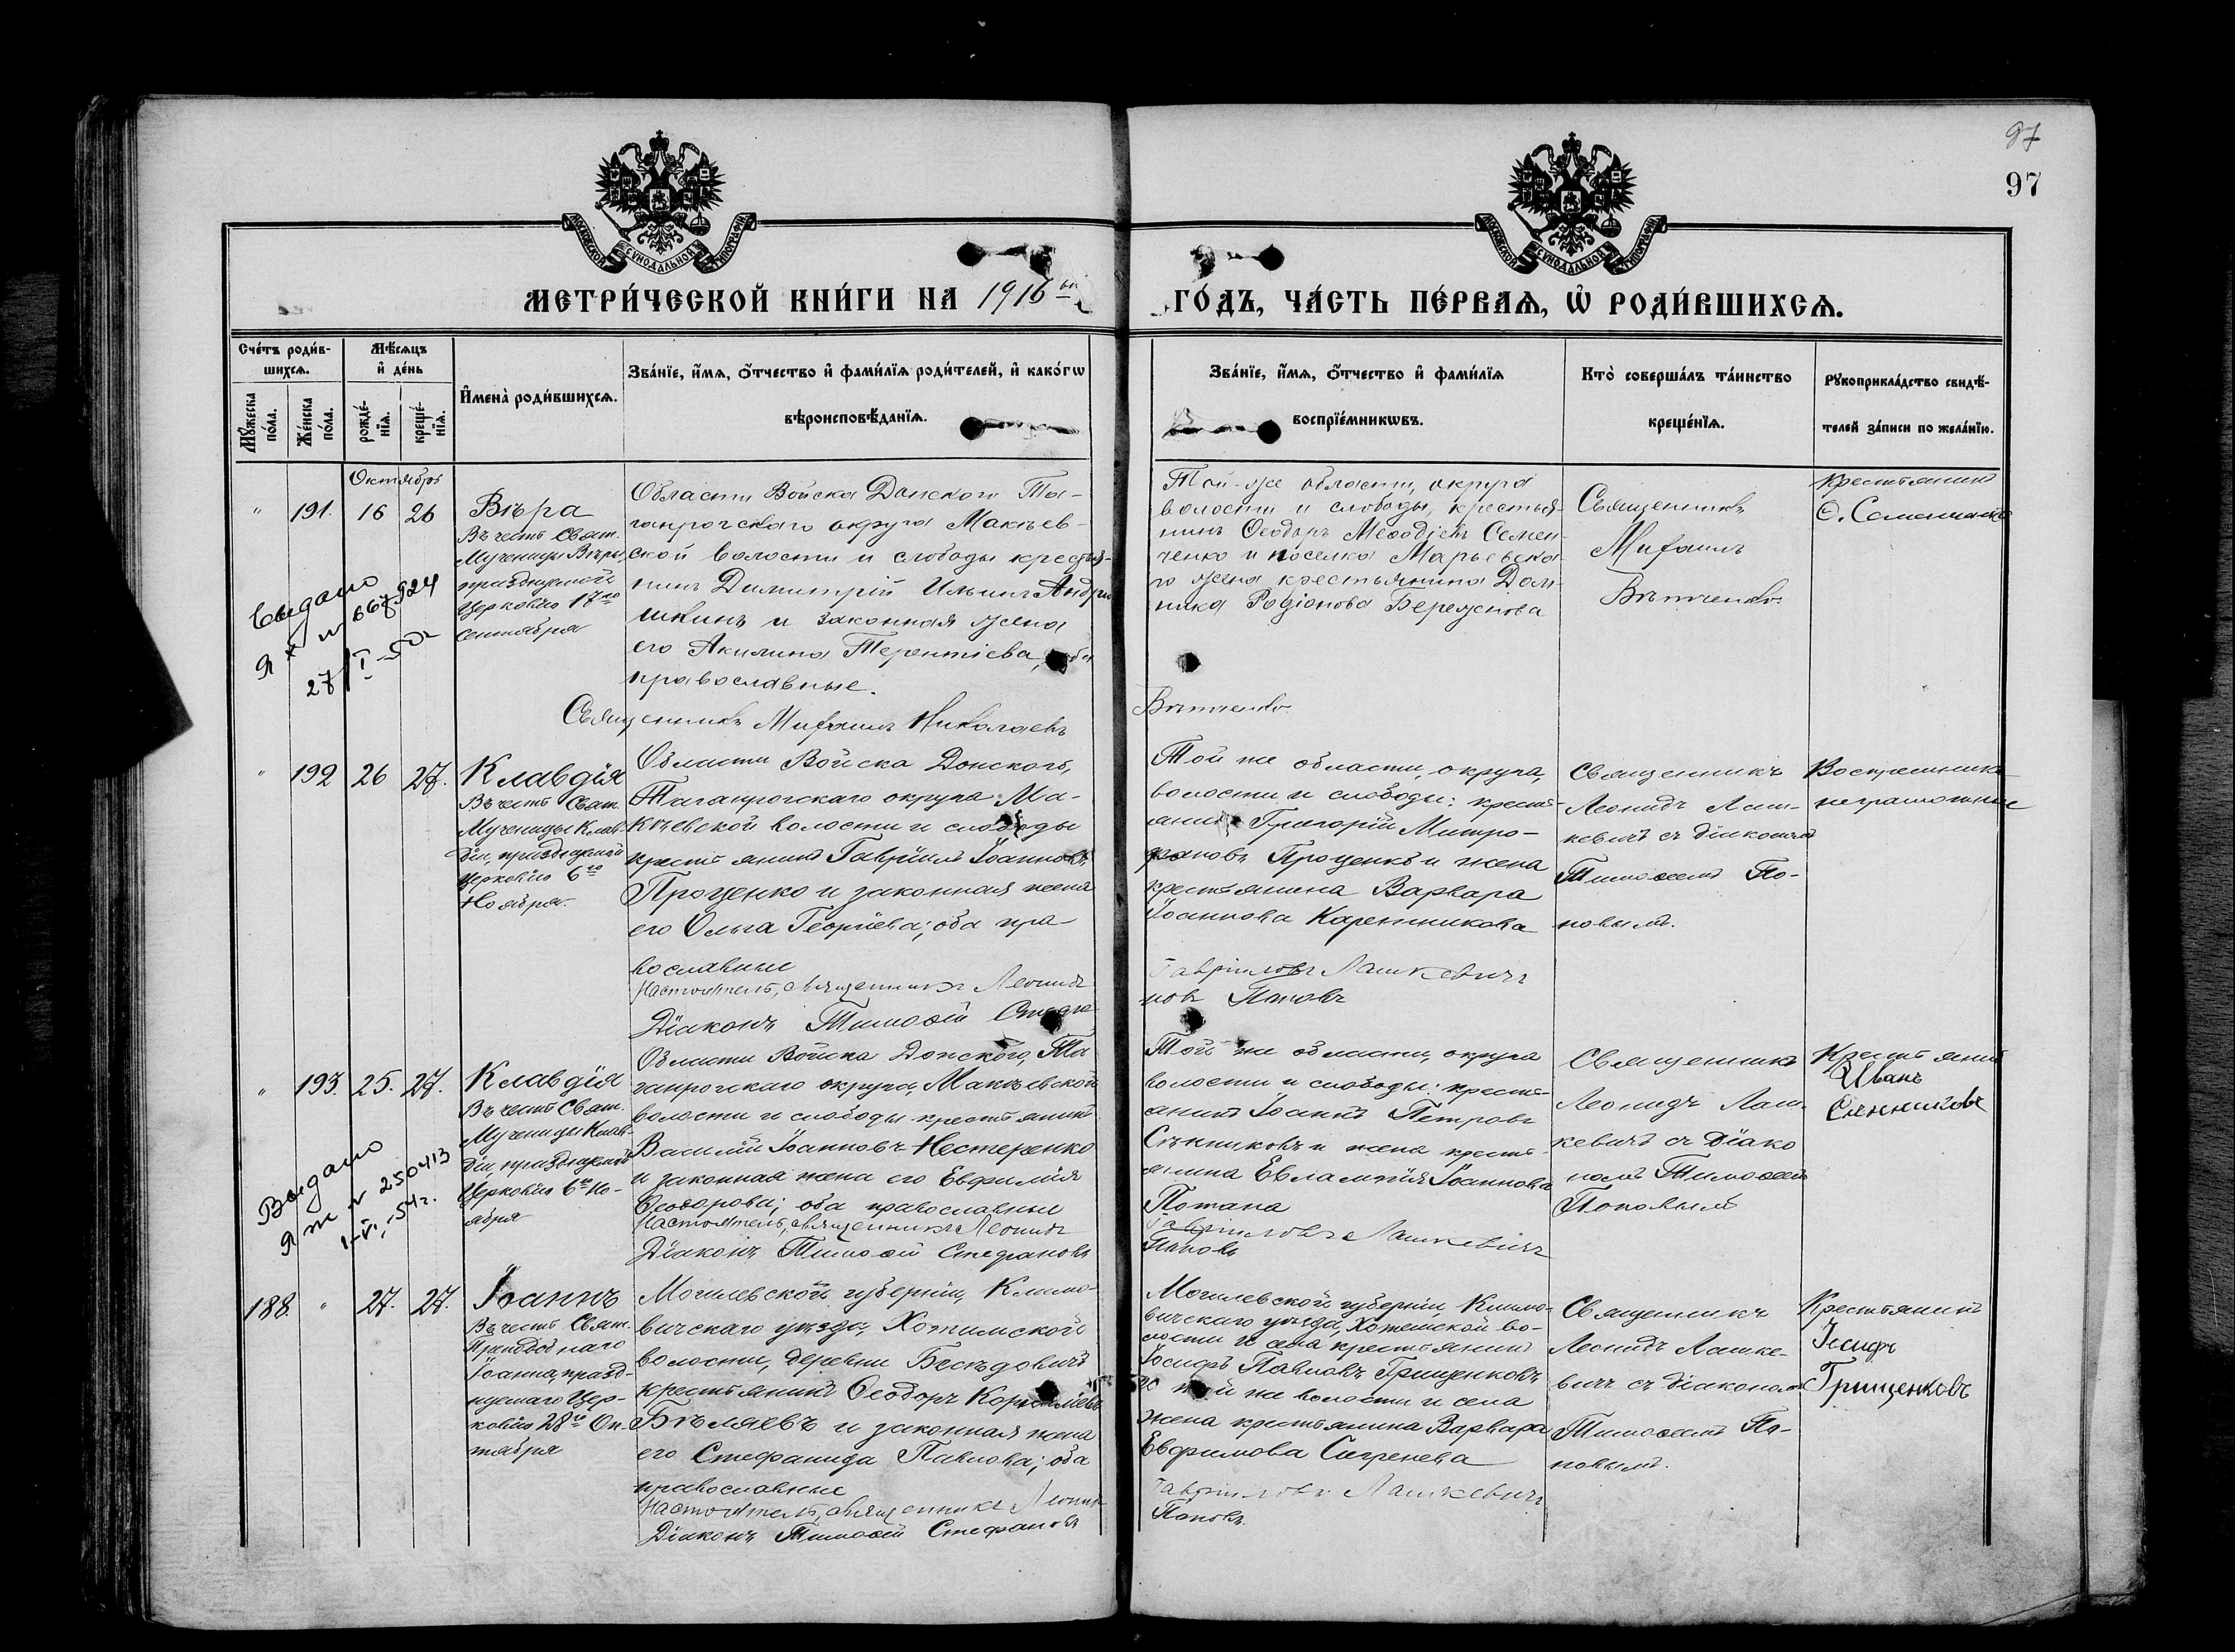 97
97
МОСКОВСКОЙ СѴНОДАЛЬНОЙ ТИПОГРАФІИ
МОСКОВСКОЙ СѴНОДАЛЬНОЙ ТИПОГРАФІИ
МЕТРИ́ЧЕСКОЙ КНИ́ГИ НА 1916
ГО́ДЪ, ЧА́СТЬ ПЕ́РВАѦ, Ѡ҆ РОДИ́ВШИХСѦ.
Сче́тъ роди́в-
шихсѧ.
Мꙋ́жеска по́ла.
Же́нска по́ла.
Мѣ́сѧцъ
и҆ де́нь
рожде́-
нїѧ.
креще́-
нїѧ.
И҆мена̀ роди́вшихсѧ.
Зва́нїе, и҆́мѧ, ѻ҆́тчество и҆ фами́лїѧ роди́телей, и҆ како́гѡ
вѣроисповѣ́данїѧ.
Зва́нїе, и҆́мѧ, ѻ҆́тчество и҆ фами́лїѧ
воспрїе́мникѡвъ.
Кто̀ соверша́лъ та́инство
креще́нїѧ.
Рꙋкоприкла́дство свидѣ́-
телей за́писи по жела́нїю.
Октябрь
" 191. 16 26
Вѣра
Въ честь Свят.
Мученицы Вѣры,
празднуемой
Церковію 17го
сентября
Выдано
667924
27/I-50г
Области Войска Донского Та-
ганрогскаго округа Макѣев-
ской волости и слободы крестья-
нинъ Димитрій Ильинъ Андрю
шкинъ и законная жена
его Акилина Терентіева, оба
православные.
Той-же области, округа
волости и слободы, крестья-
нинъ Ѳеодоръ Меѳодіевъ Семен-
ченко и поселка Марьевска-
го жена крестьянина Дом-
ника Родіонова Бережнова
Священникъ
Михаилъ
Крестьянинъ
Ѳ. Семенченко
Священникъ Михаилъ Николаевъ
" 192 26 27.
Клавдія
Въ честь Свят.
Мученицы Клав-
діи, празднуемой
Церковію 6го
Ноября.
Области Войска Донского,
Таганрогскаго округа Ма-
кѣевской волости и слободы
крестьянинъ Гавріилъ Іоанновъ
Проценко и законная жена
его Ольга Георгіева; оба пра-
вославные
Настоятель, священникъ Леонидъ
Діаконъ Тимоѳей Стефа
Той же области, округа,
волости и слободы: кресть-
янинъ Григорій Митро-
фановъ Проценко и жена
крестьянина Варвара
Іоаннова Каренникова
Гавріиловъ Лашкевичъ
новъ Поповъ
Священникъ
Леонидъ Лаш-
кевичъ съ діакономъ
Тимоѳеемъ По-
повымъ.
Воспріемники
неграмотные
" 193. 25. 27.
Клавдія
Въ честь Свят.
Мученицы Клав-
діи, празднуемой
Церковію 6го Но-
ября
Выдано
250413
54г.
Области Войска Донского, Та
ганрогскаго округа, Макѣевской
волости и слободы крестьянинъ
Василій Іоанновъ Нестеренко
и законная жена его Евфимія
Ѳеодорова; оба православные
Настоятель, священникъ Леонидъ
Діаконъ Тимоѳей Стефановъ
Той же области, округа
волости и слободы: кресть-
янинъ Іоаннъ Петровъ
Сѣнниковъ и жена кресть-
янина Евлампія Іоаннова
Гавріиловъ Лашкевичъ
Поповъ
Священникъ
Леонидъ Лаш-
кевичъ съ діако
номъ Тимоѳеемъ
Поповымъ
Крестьянинъ
Иванъ
188. " 27. 27.
Іоаннъ
Въ честь Свят.
Преподобнаго
Іоанна, празд-
нуемаго Цер-
ковію 28го Ок-
тября
Могилевской губерніи, Климо-
вичскаго уѣзда, Хотимской
волости, деревни Бесѣдовичъ
крестьянинъ Ѳеодоръ Корниліевъ
Бѣляевъ и законная жена
его Стефанида Павлова; оба
православные
Настоятель, священникъ Леонидъ
Діаконъ Тимоѳей Стефановъ
Могилевской губерніи, Климо-
вичскаго уѣзда, Хотимской во-
лости и села крестьянинъ
Іосифъ Павловъ Грищенковъ
и той же волости и села
жена крестьянина Варвара
Евфимова Сигренева
Гавріиловъ Лашкевичъ
Поповъ.
Священникъ
Леонидъ Лашке-
вичъ съ діакономъ
Тимоѳеемъ По-
повымъ.
Крестьянинъ
Іосифъ
Грищенковъ